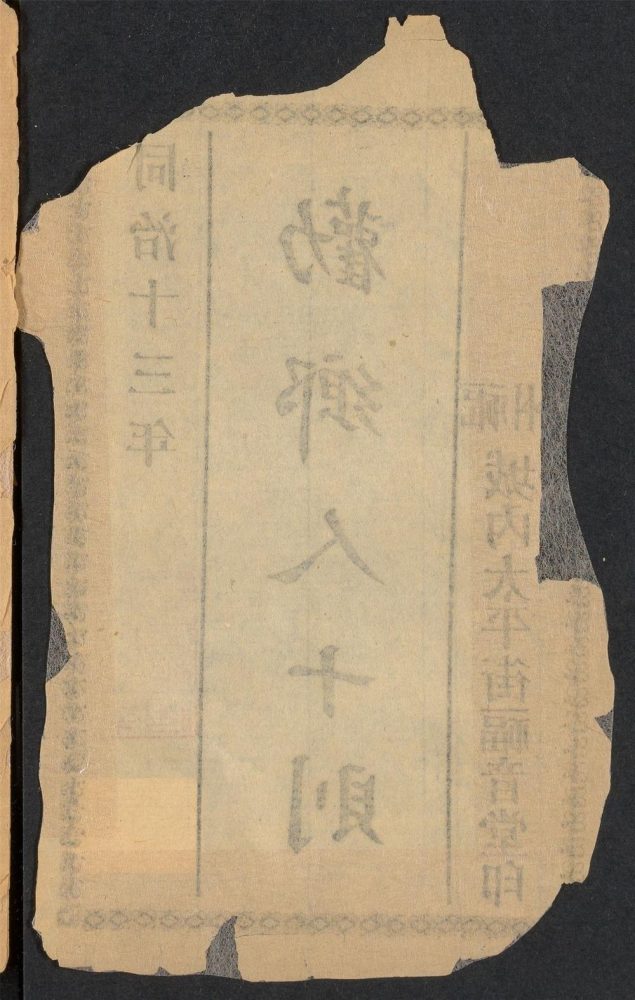 同治十三年
勸鄉人十則
福州
城內太平街福音堂印